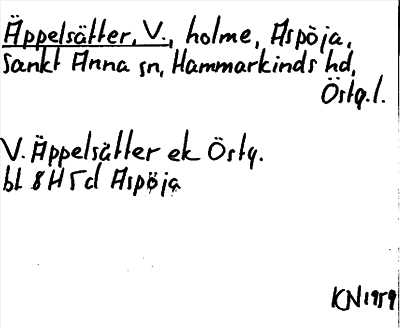 Äppelsätter, V., holme, Aspöja,
Sankt Anna sn, Hammarkinds hd,
Östg.l.
V. Äppelsätter ek Östg.
bl 8H5d Aspöja
KN1959